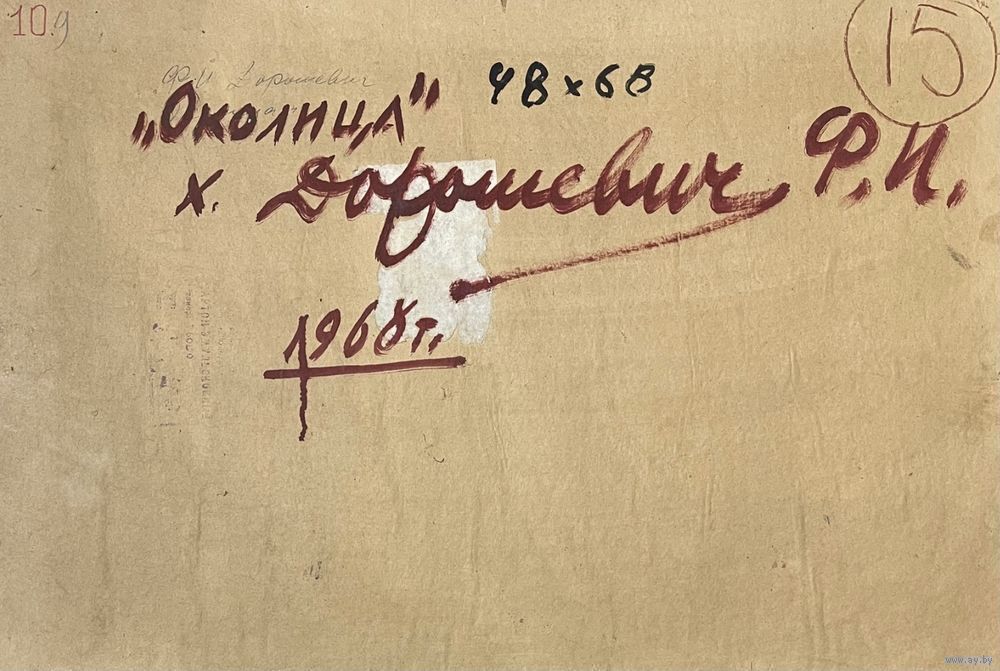 10.9
15
Ф И Дорошевич
„Околица" 48 x 68
х. Дорошевич Ф.И.
1968 г.
www.ay.by